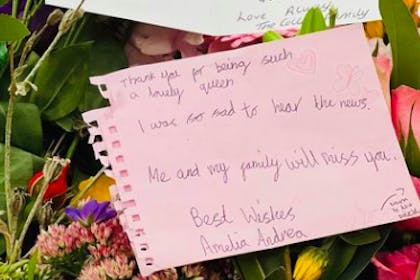 Love Always
The Family
Thank you for being such
a lovely queen
I was so sad to hear the news.
Me and my family will miss you.
Best Wishes
Amelia Andrea